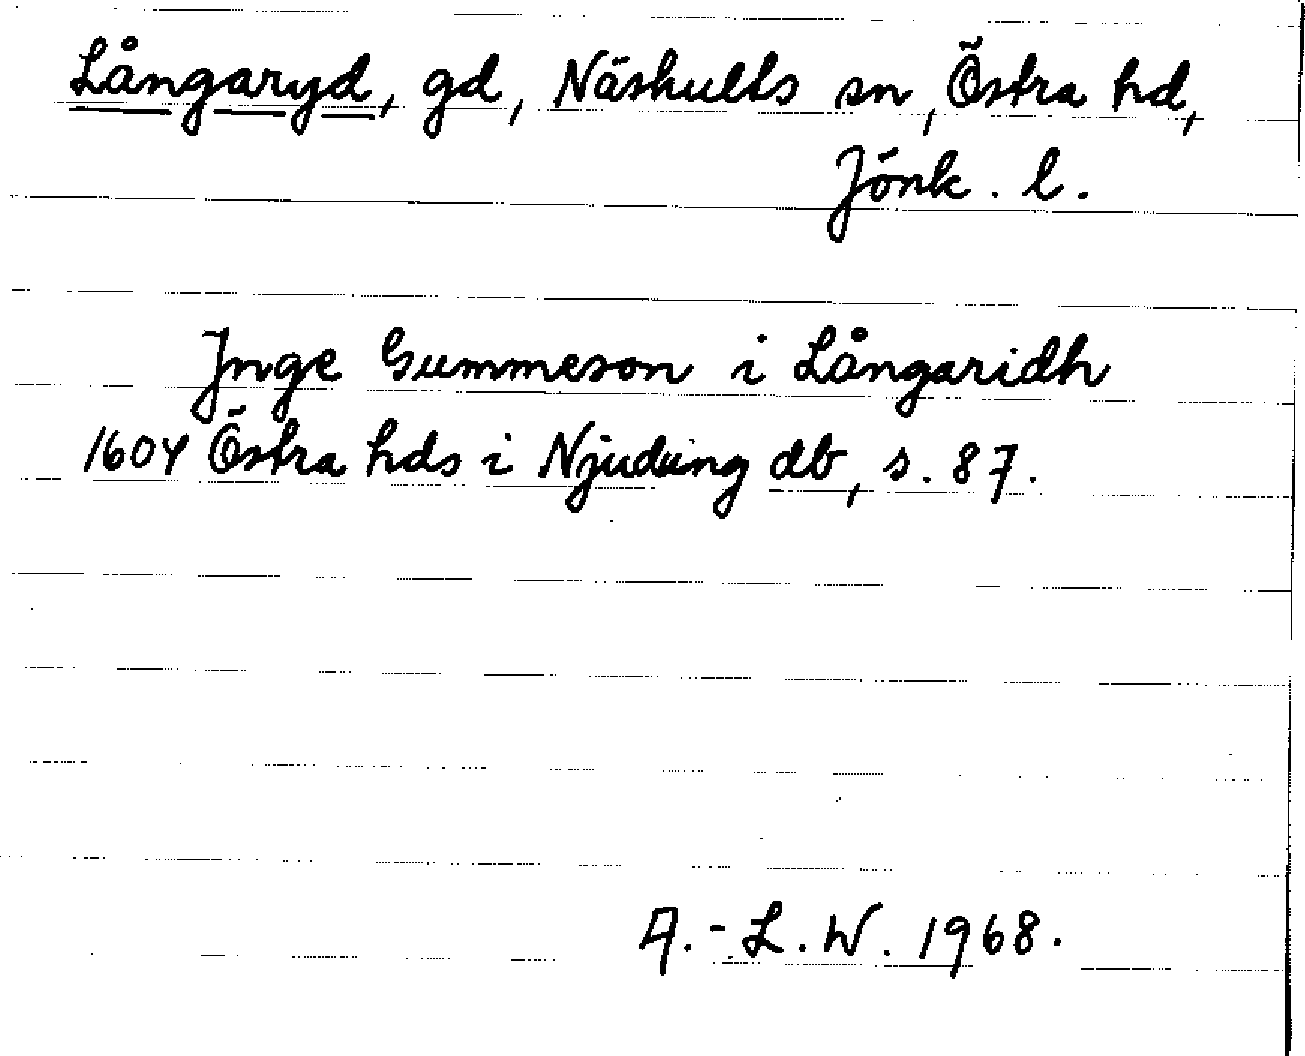 Långaryd, gd, Näshults sn, Östra hd,
Jönk. l.
Inge Gummeson i Långaridh
1604 Östra hds i Njudung db, s. 87.
A.-L. W. 1968.